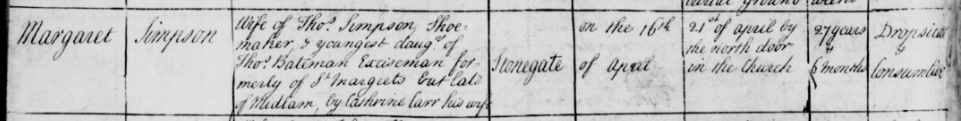 Margaret
Simpson
Wife of Thos. Simpson, Shoe-
maker, & youngest daugr. of
Thos. Bateman Exciseman for-
merly of St. Margrets but late
of Midlam, by Cathrine Carr his wife
Stonegate
on the 16th
of April
21st of april by
the north door
in the Church
27 years
&
6 months
Dropsical
&
Consumtive